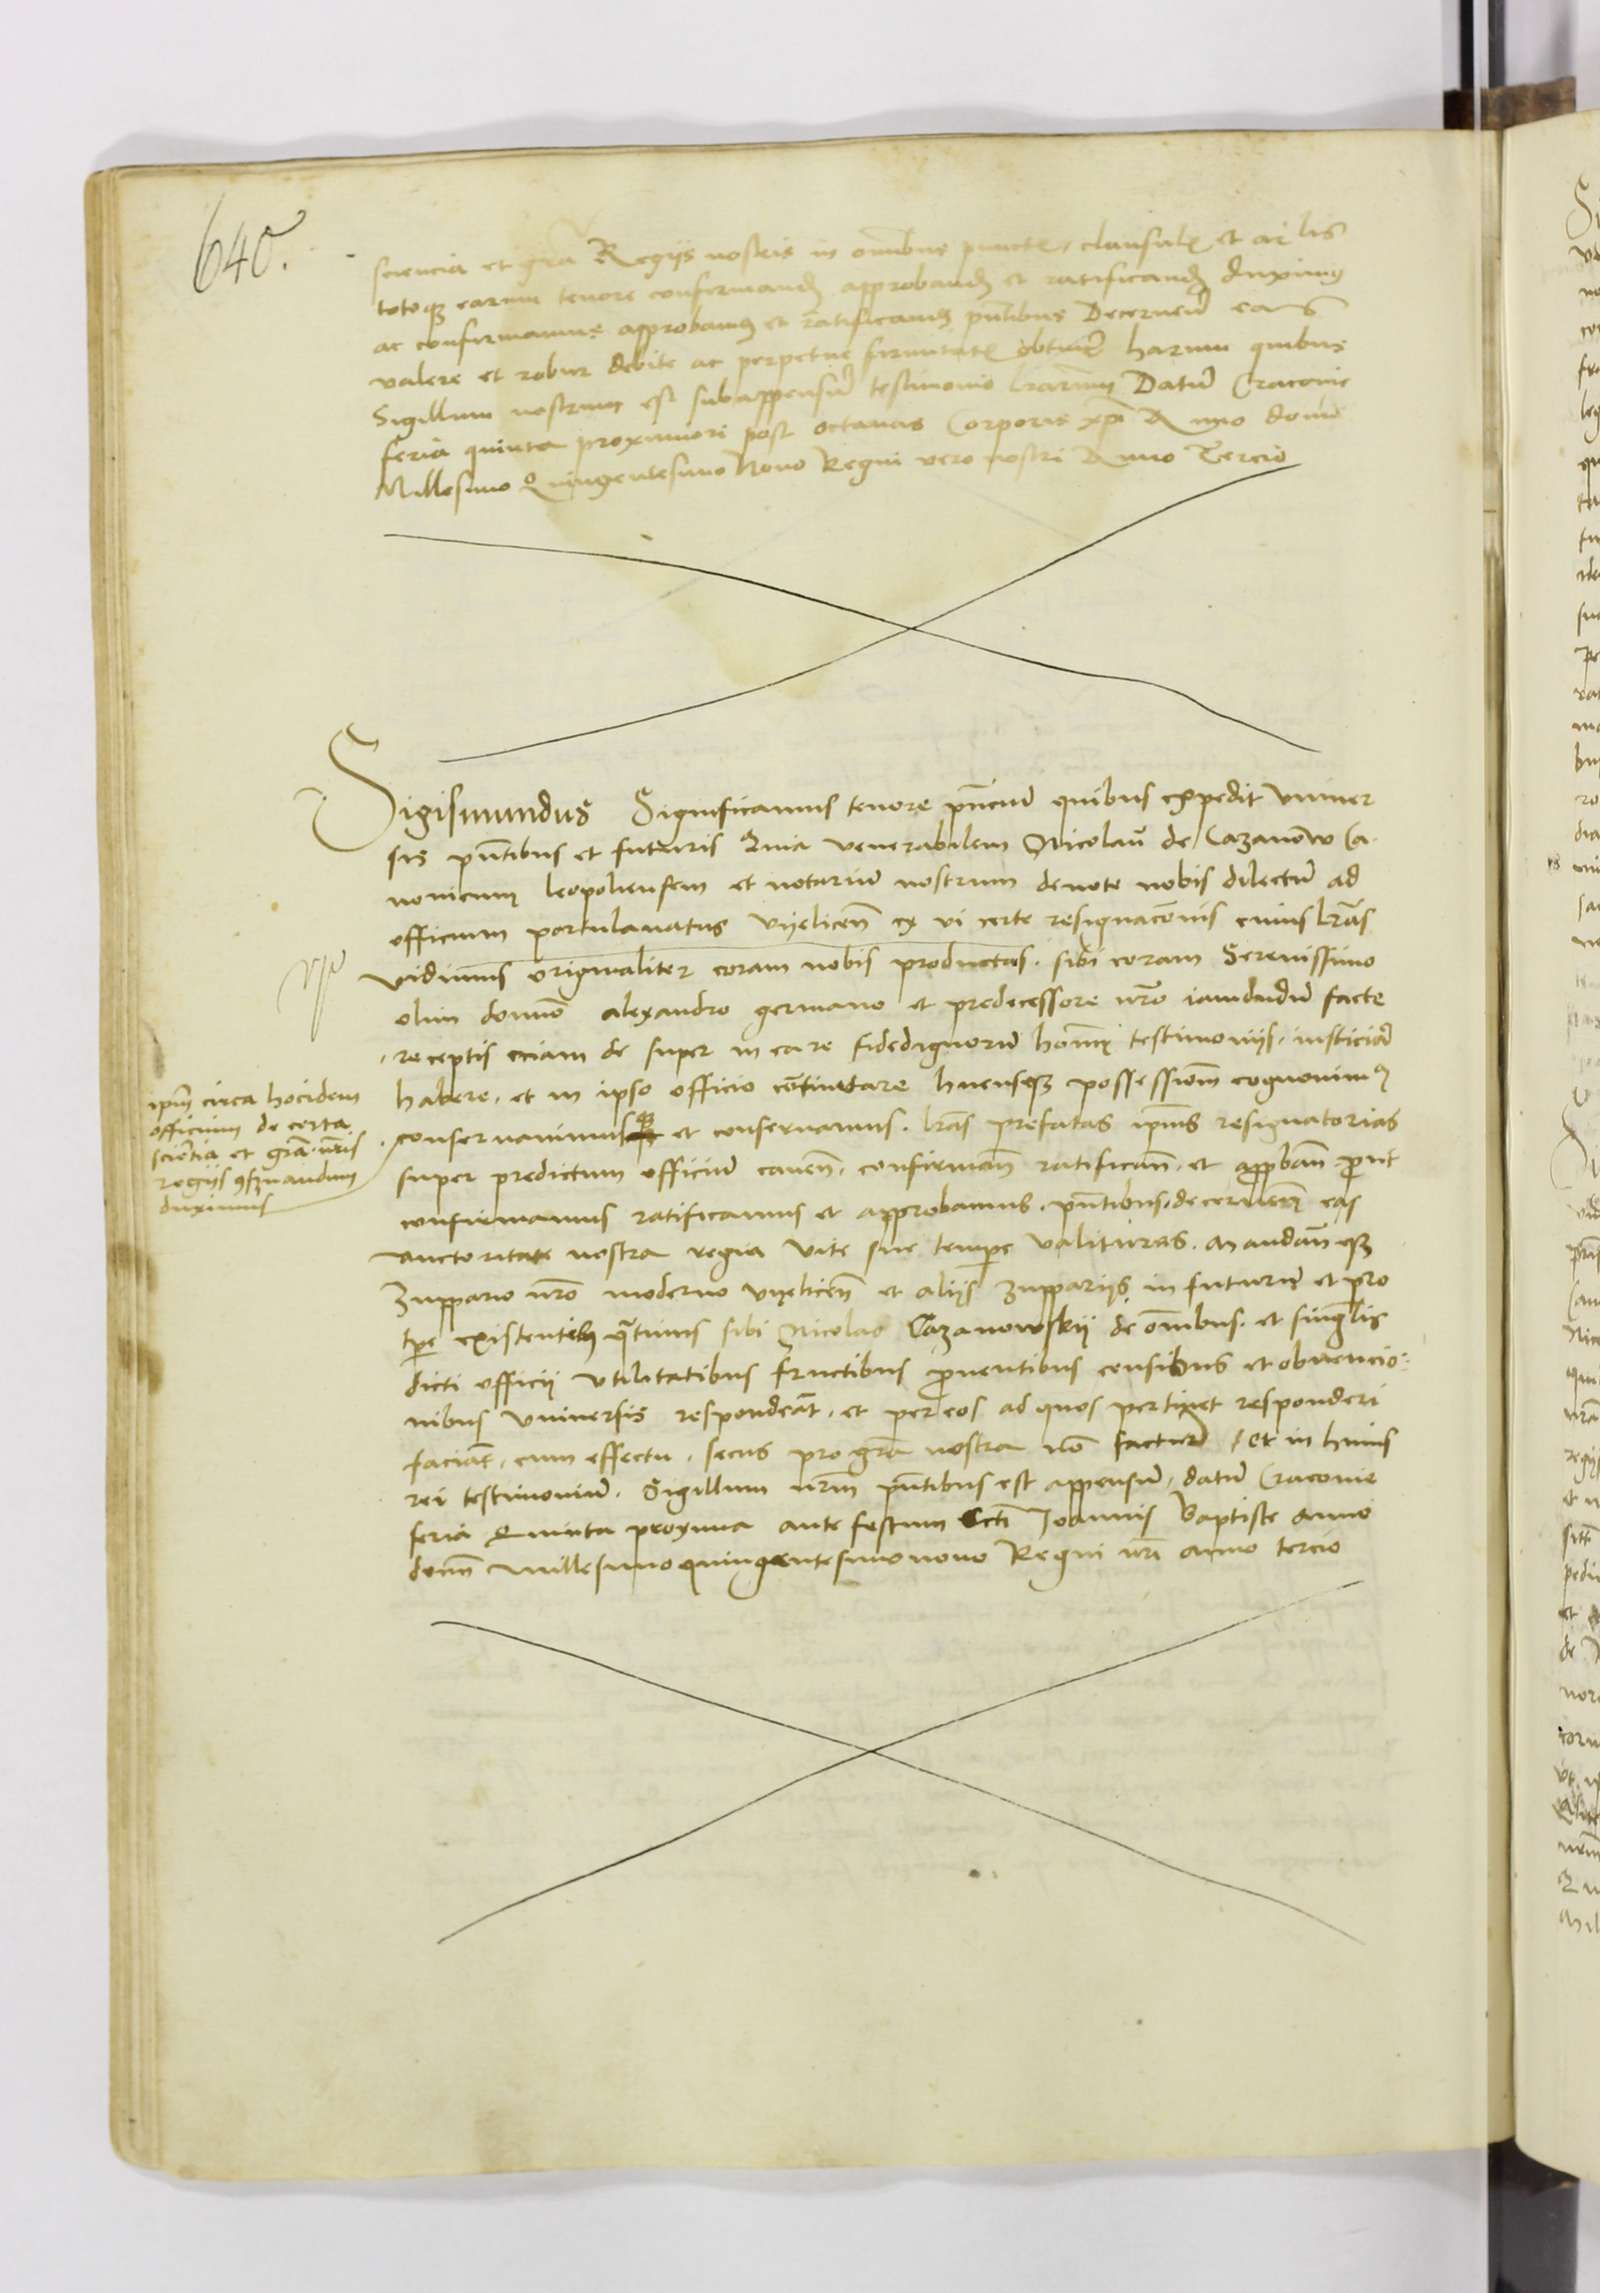 640.
sciencia et gra Regijs nostris in omnibus punctis clausulis et ar lis
totoq3 earum tenore confirmand approband et ratificand duximus
ac confirmamus approbamus et ratificamus pntibus Decernend eas
valere et robur debite ac perpetue firmitatis obtinere harum quibus
Sigillum nostrum est subappensum testimonio lrarum Datum Cracouie
feria quinta proximiori post octauas Corporis xpi Anno domi
Millesimo Quingentesimo Nono Regni vero nostri Anno Tercio
Sigismundus Significamus tenore pncium quibus expedit vniuer
sis pntibus et futuris Quia venerabilem Nicolau de Cazanow Ca
nonicum leopoliensem et notarium nostrum deuote nobis dilectum ad
officium portulanatus vyelicen ex vi certe resignacionis cuius lras
vidimus originaliter coram nobis productas sibi coram Serenissimo
olim domno alexandro germano et predecessore nro iamdudum facte
receptis eciam de super in ea re fidedignorum homi testimonijs iusticiam
habere et in ipso officio continuare huiusq3 possessionem cognouimus
conseruauimusq3 et conseruamus lras prefatas ipius resignatorias
super predictum officium cauen confirman ratifican et approban prout
confirmamus ratificamus et approbamus pntibus decernen eas
auctoritate nostra regia vite sue tempe valituras Mandan eq3
zuppario nro moderno vyelicen et alijs zupparijs in futurum et pro
tpe existentib quatinus sibi Nicolao Cazanowskij de omibus et singulis
dicti officij vtilitatibus fructibus prouentibus censibus et obuencio
nibus vniuersis respondeat et per eos ad quos pertinet responderi
faciat cum effectu secus pro gra nostra no factur Et in huius
rei testimonium Sigillum nrm pntibus est appensum datum Cracouie
feria Quinta proxima ante festum Scti Joannis Baptiste anno
domi millesimo quingentesimo nono Regni nri anno tercio
ipm circa hocidem
officium de certa
scientia et gra nris
regijs 9seruandum
duximus